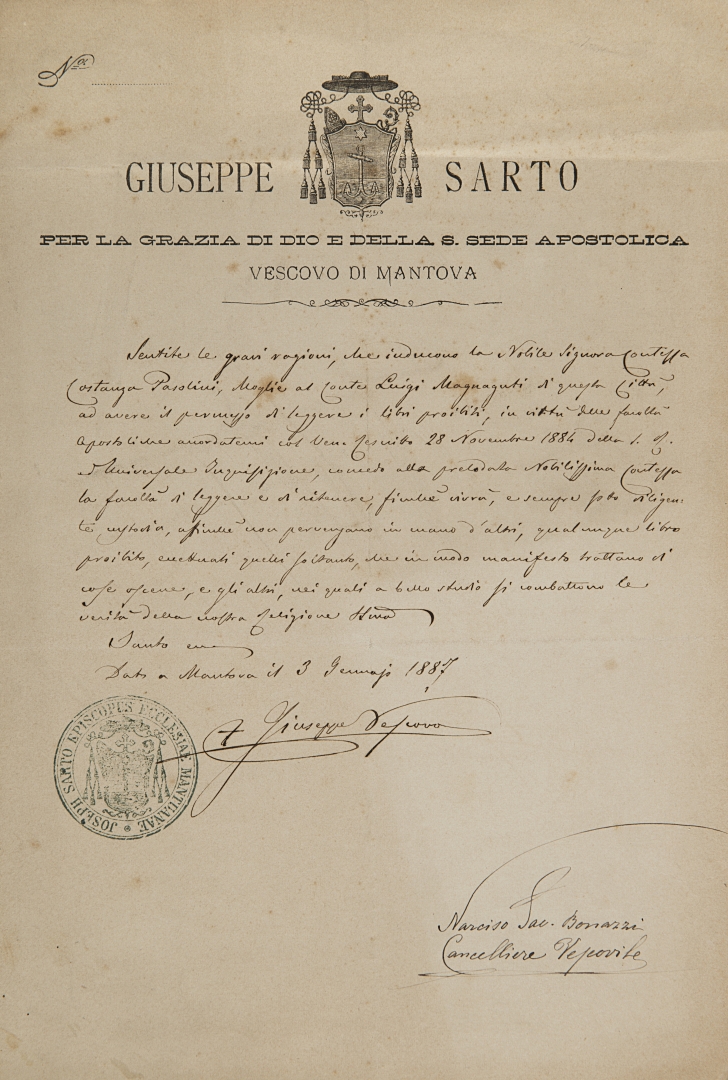 N.ro
GIUSEPPE SARTO
PER LA GRAZIA DI DIO E DELLA S. SEDE APOSTOLICA
VESCOVO DI MANTOVA
Sentite le gravi ragioni, che inducono la Nobile Signora Contessa
Costanza Pasolini, Moglie al Conte Luigi Magnaguti di questa Città,
ad avere il permesso di leggere i libri proibiti, in virtù delle facoltà
Apostoliche accordatemi col Ven. Rescritto 28 Novembre 1884 della S. R.
ed Universale Inquisizione, concedo alla prelodata Nobilissima Contessa
la facoltà di leggere e di ritenere, finchè vivrà, e sempre sotto diligen-
te custodia, affinchè non pervengano in mano d'altri, qualunque libro
proibito, eccettuati quelli soltanto, che in modo manifesto trattano di
cose oscene, e gli altri, nei quali a bello studio si combattono le
verità della nostra Religione
Dato a Mantova il 3 Gennajo 1887
+ Giuseppe Vescovo
JOSEPH SARTO EPISCOPUS ECCLESIAE MANTUANAE
Narciso Sac. Bonazzi
Cancelliere Vescovile